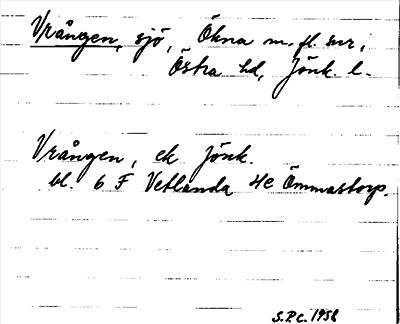 Vrången, sjö, Ökna m. fl. snr,
Östra hd, Jönk. l.
Vrången, ek Jönk.
bl. 6 F Vetlanda 4e Ömmastorp.
S.P.C. 1958